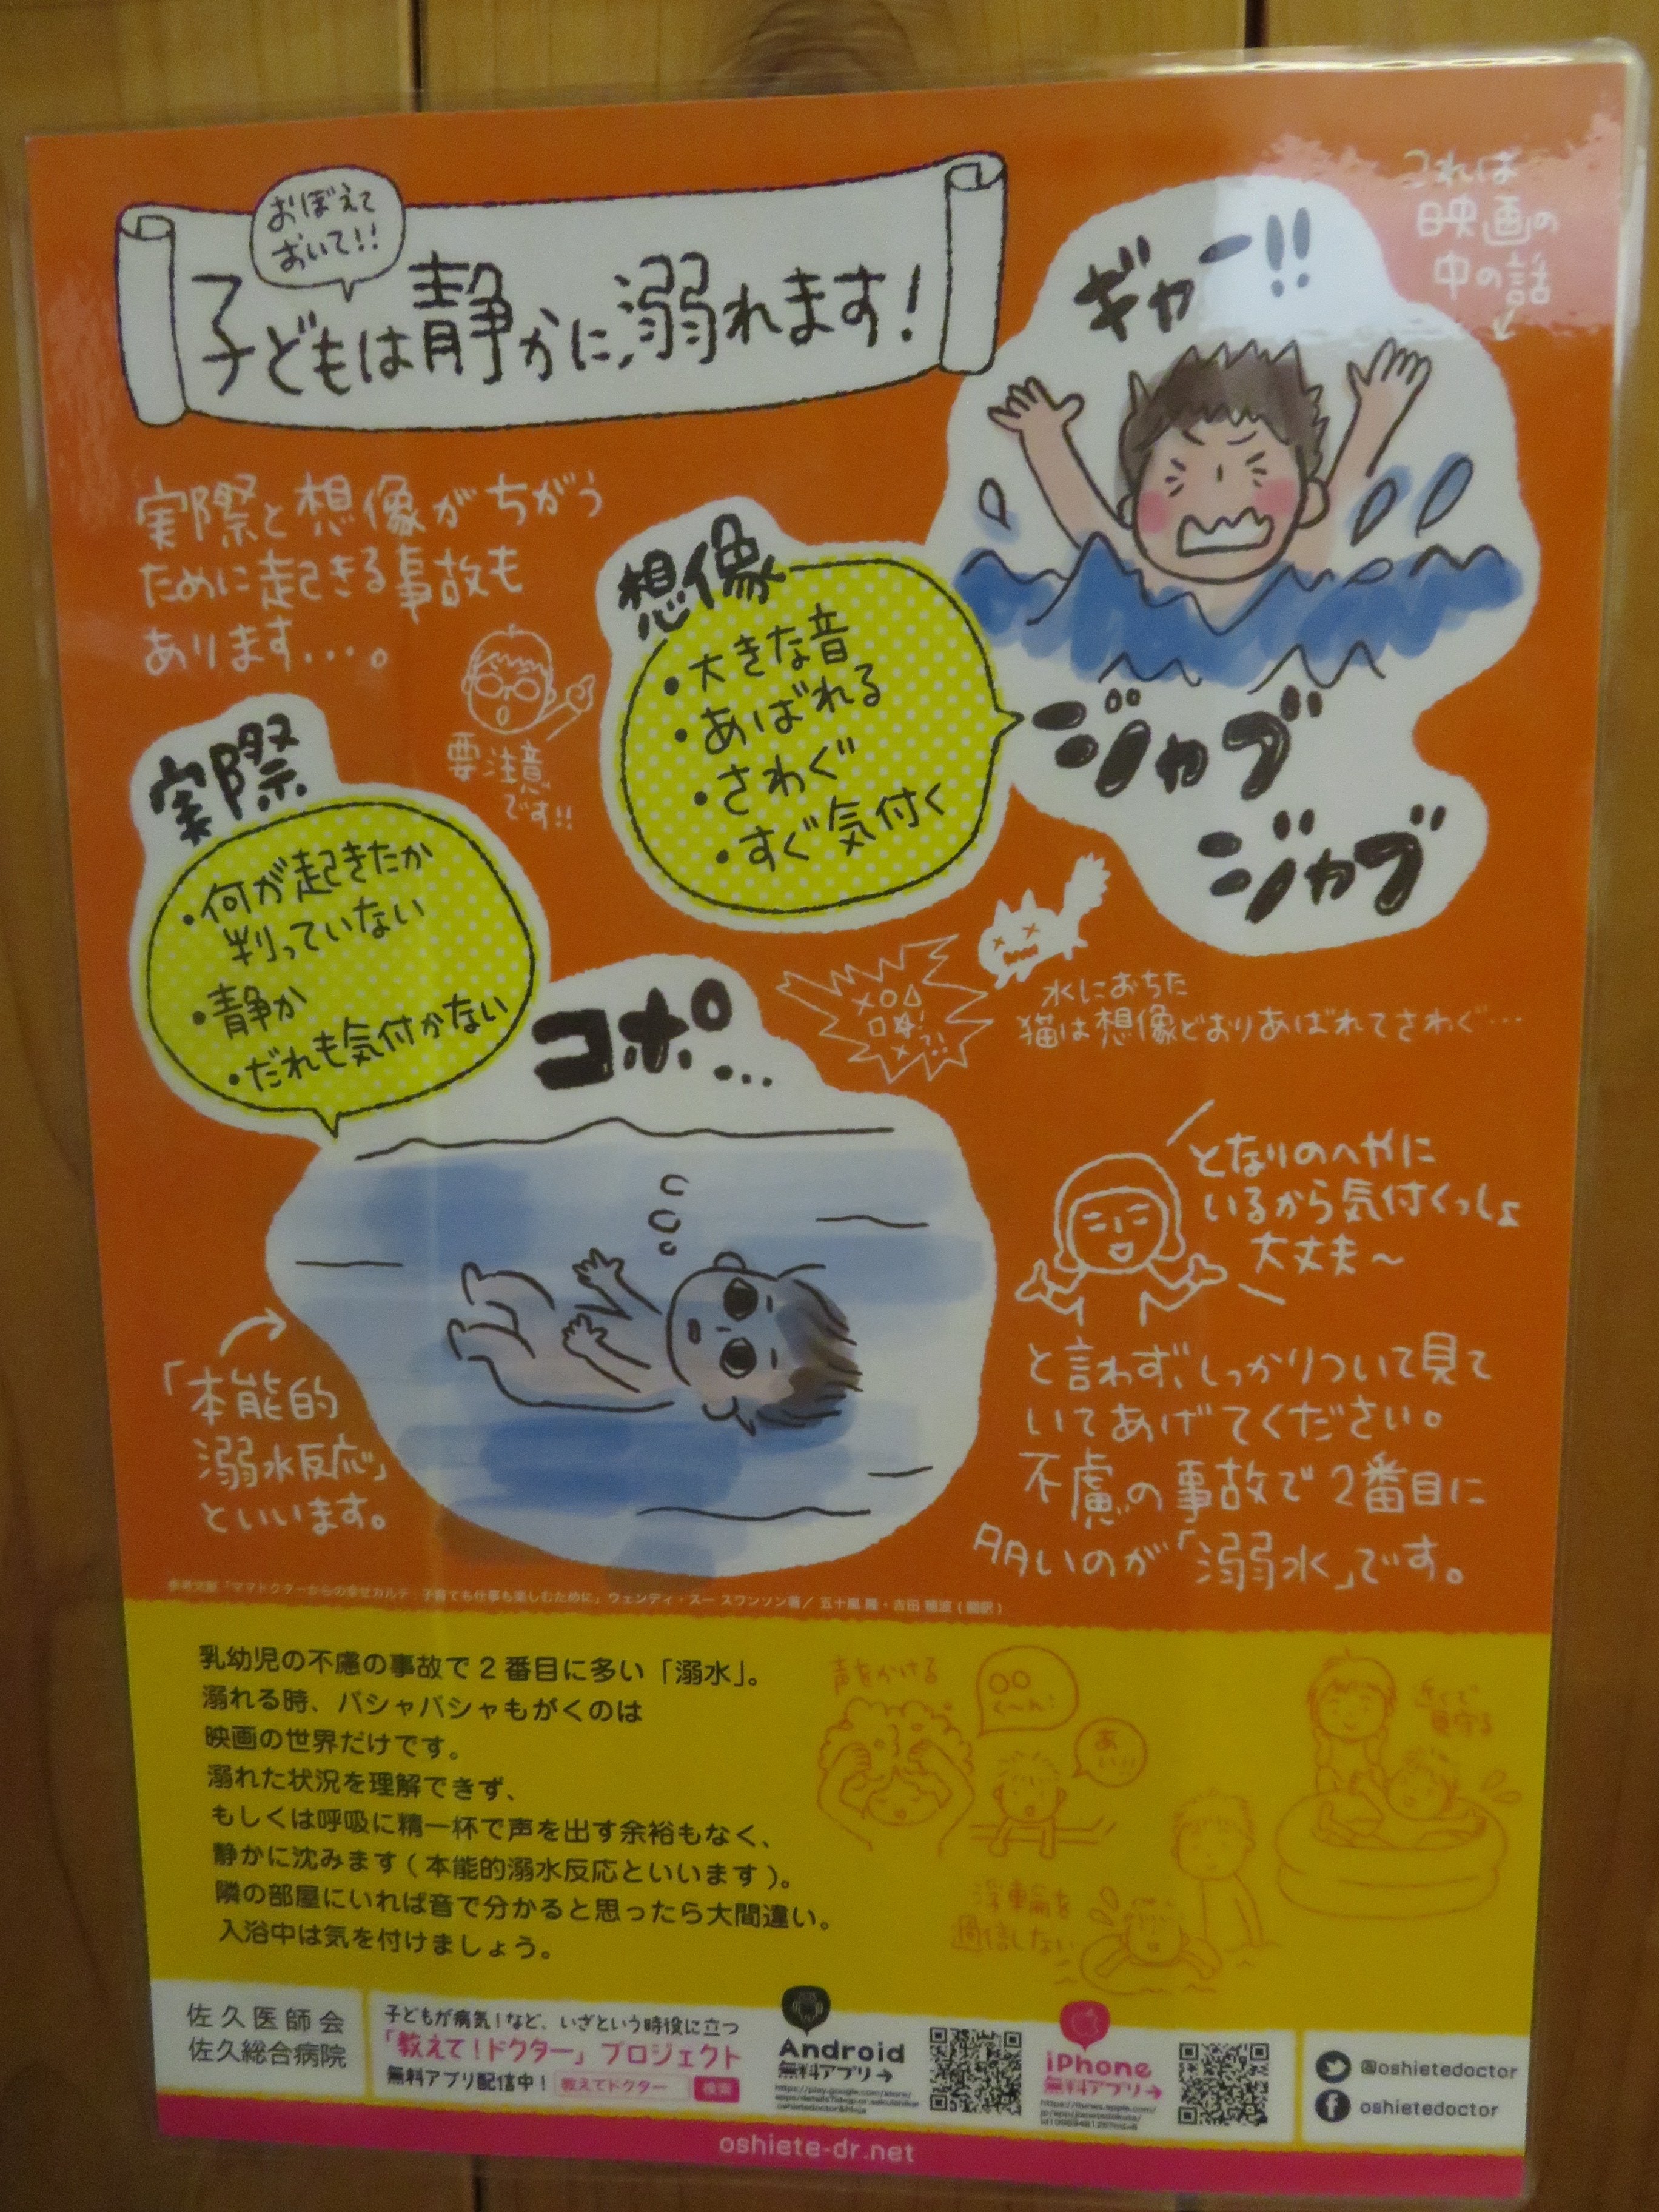 おぼえて
おいて!!
子どもは静かに溺れます!
これは
映画の
中の話
ギャー!!
実際と想像がちがう
ために起きる事故も
あります...。
要注意
です!!
想像
・大きな音
・あばれる
・さわぐ
・すぐ気付く
ジャブ
ジャブ
実際
・何が起きたか
判っていない
・静か
・だれも気付かない
コポ...
水におちた
猫は想像どおりあばれてさわぐ...
となりのへやに
いるから気付くっしょ
大丈夫〜
と言わず、しっかりついて見て
いてあげてください。
不慮の事故で2番目に
多いのが「溺水」です。
「本能的
溺水反応」
といいます。
参考文献「ママドクターからの幸せカルテ:子育ても仕事も楽しむために」ウェンディ・スー スワンソン著/五十嵐 隆・吉田 穂波(翻訳)
乳幼児の不慮の事故で2番目に多い「溺水」。
溺れる時、バシャバシャもがくのは
映画の世界だけです。
溺れた状況を理解できず、
もしくは呼吸に精一杯で声を出す余裕もなく、
静かに沈みます(本能的溺水反応といいます)。
隣の部屋にいれば音で分かると思ったら大間違い。
入浴中は気を付けましょう。
声をかける
○○
く〜ん!
あ
近くで
見守る
浮輪を
過信しない
佐久医師会
佐久総合病院
子どもが病気!など、いざという時役に立つ
「教えて!ドクター」プロジェクト
無料アプリ配信中!
教えてドクター 検索
Android
無料アプリ→
iPhone
無料アプリ→
@oshietedoctor
oshietedoctor
oshiete-dr.net